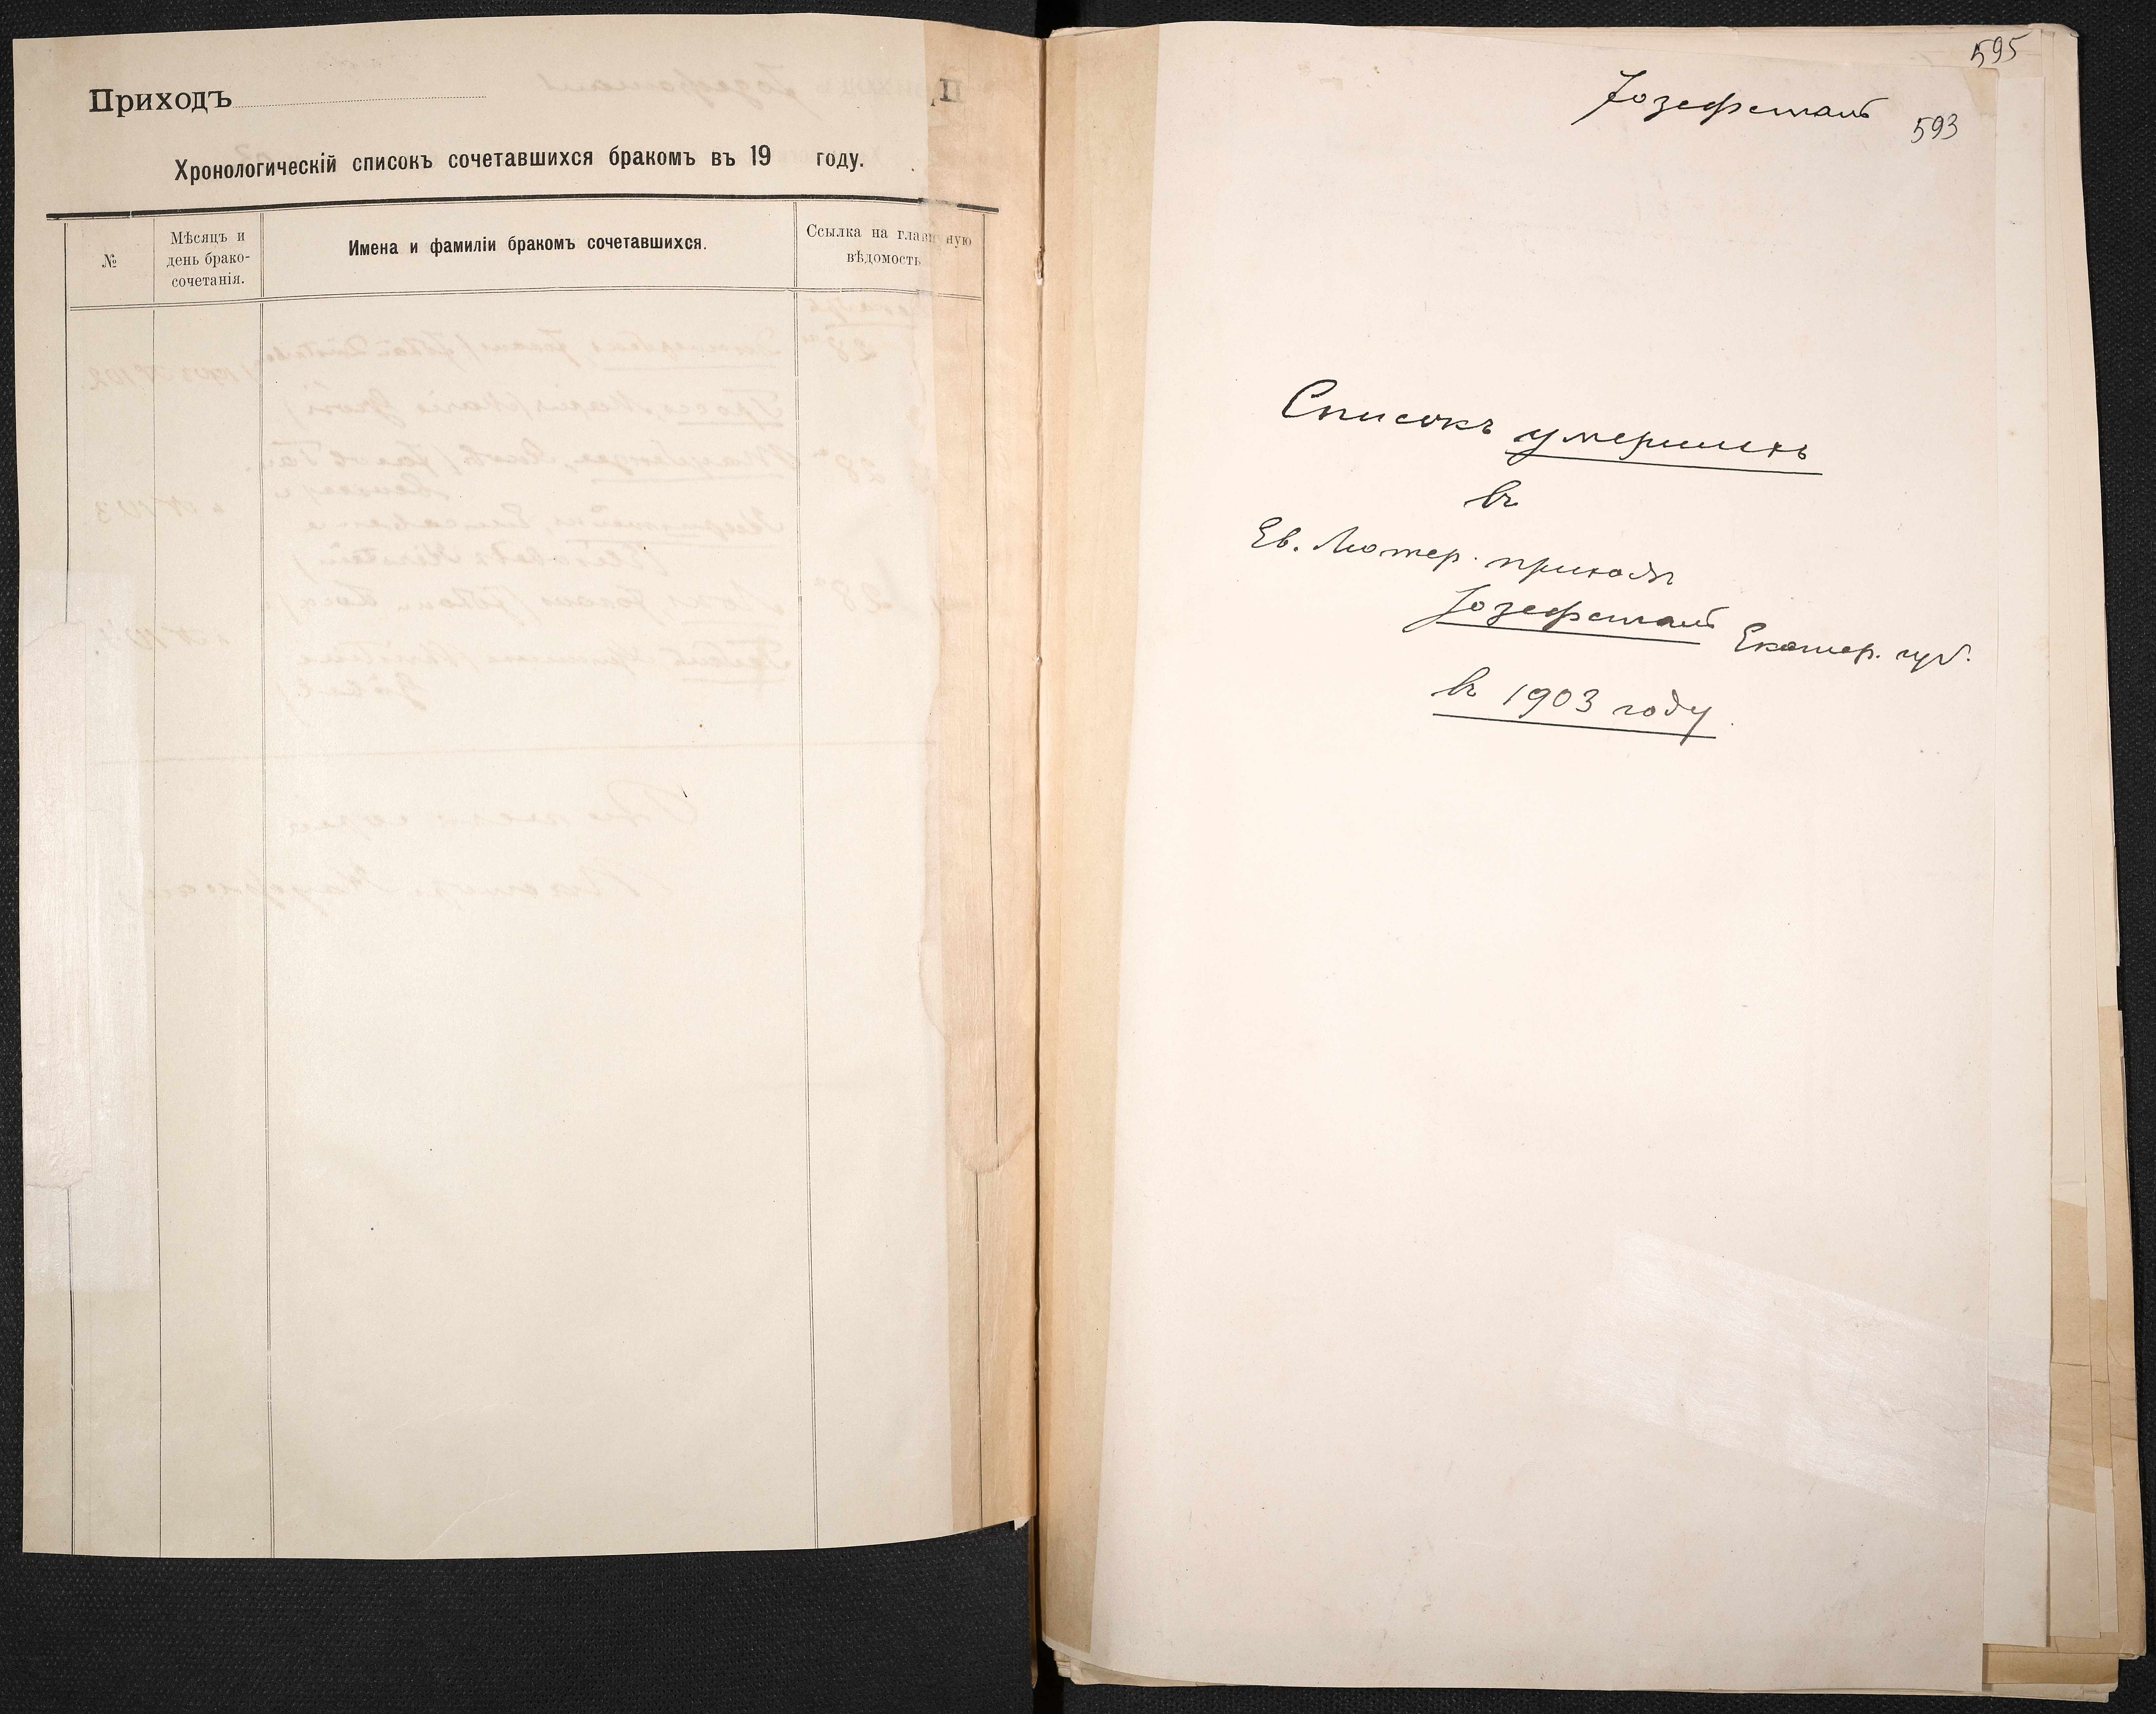 Приходъ
Хронологическій списокъ сочетавшихся бракомъ въ 19 году.
№
Мѣсяцъ и
день брако-
сочетанія.
Имена и фамиліи бракомъ сочетавшихся.
Ссылка на главную
вѣдомость
595
Іозефсталь
593
Списокъ умершихъ
въ
Ев. Лютер. приходѣ
Іозефсталь Екатер. губ.
въ 1903 году.